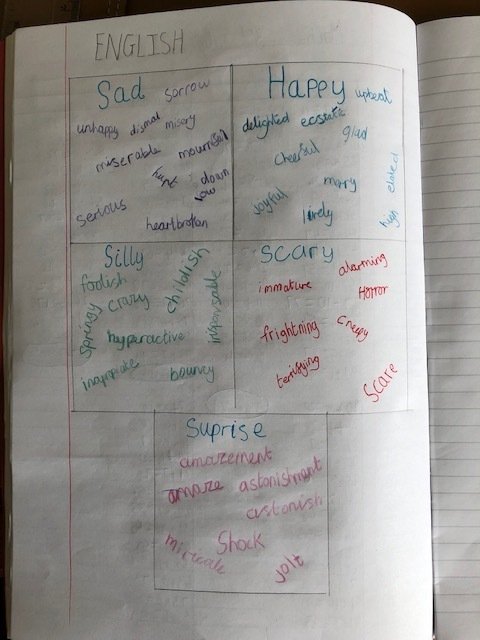 ENGLISH
Sad
sorrow
unhappy dismal misery
miserable mournful
hurt down
low
serious
heartbroken
Happy
upbeat
delighted ecstatic
glad
cheerful
merry
elated
joyful
lively
high
Silly
foolish
childish
crazy
springy
hyperactive
bouncy
scary
alarming
immature
Horror
frightning
creepy
terrifying
Scare
Suprise
amazement
amaze astonishment
astonish
Shock
jolt